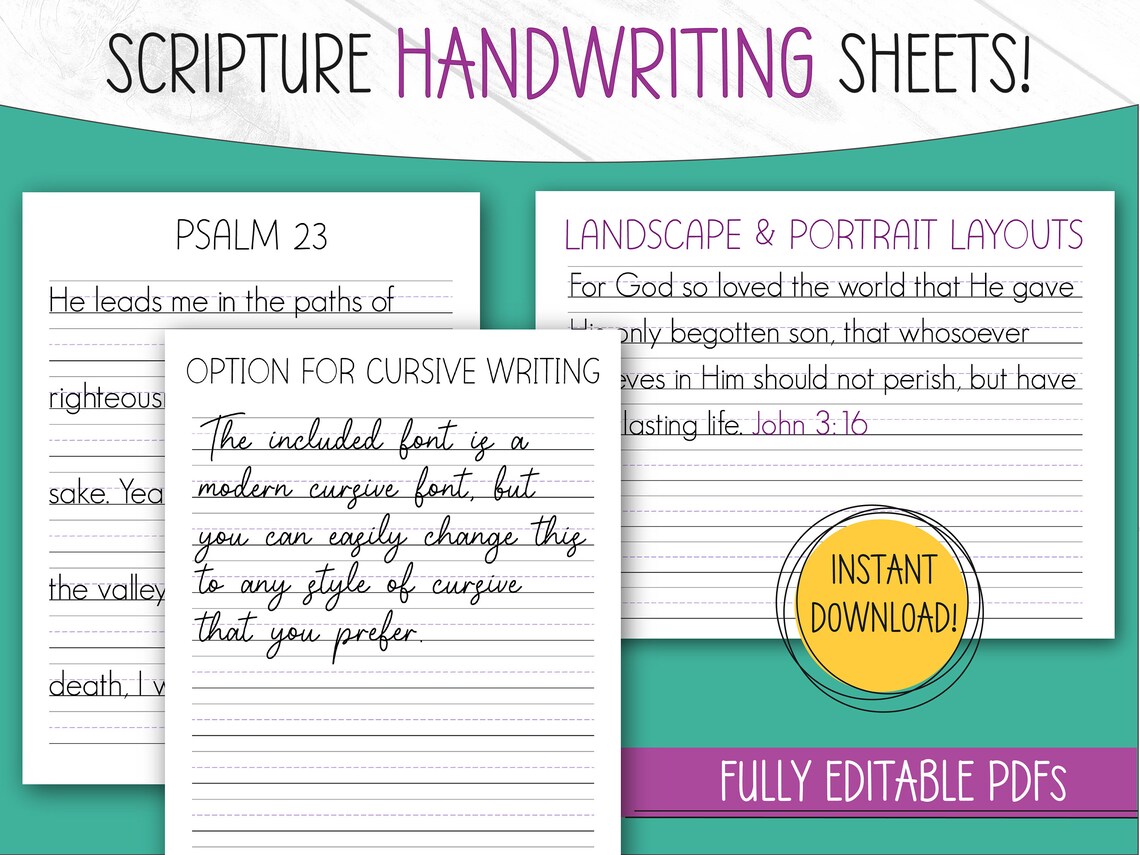 SCRIPTURE HANDWRITING SHEETS!
PSALM 23
He leads me in the paths of
righteous
sake. Yea
the valley
death, I
OPTION FOR CURSIVE WRITING
The included font is a
modern cursive font, but
you can easily change this
to any style of cursive
that you prefer.
LANDSCAPE & PORTRAIT LAYOUTS
For God so loved the world that He gave
His only begotten son, that whosoever
eves in Him should not perish, but have
lasting life. John 3:16
INSTANT
DOWNLOAD!
FULLY EDITABLE PDFs